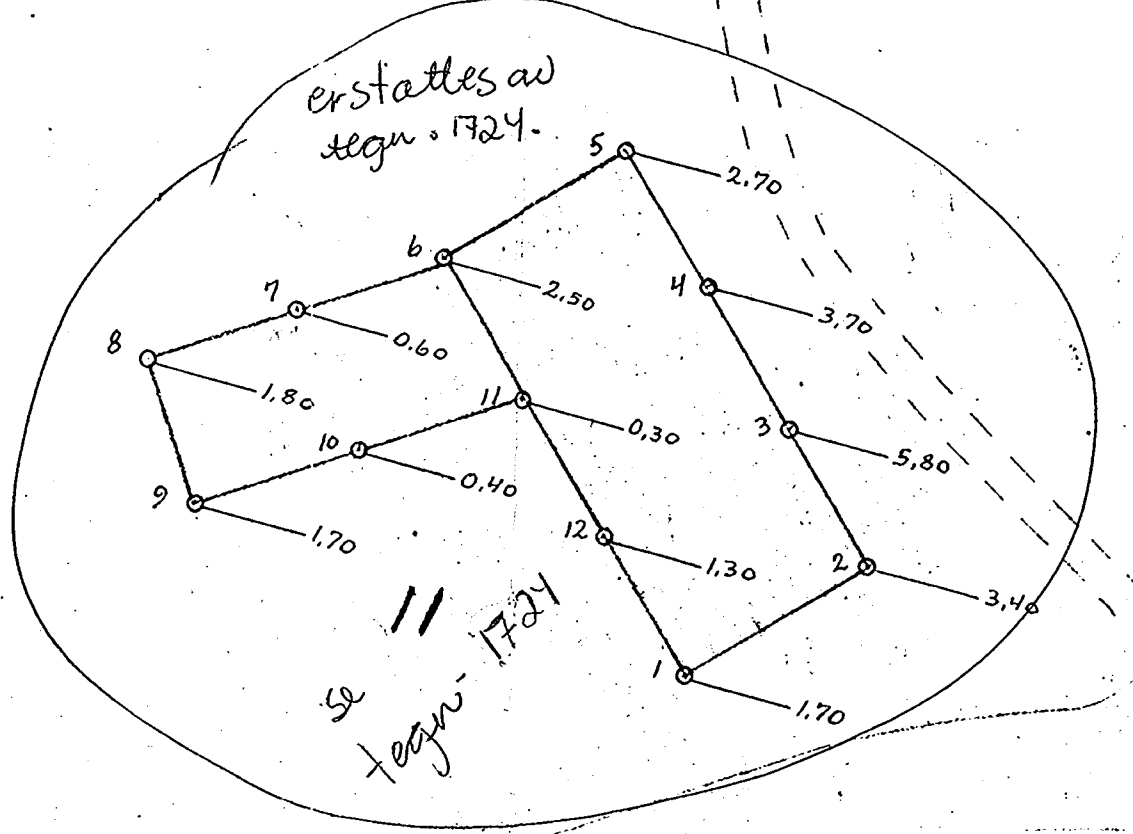 erstattes av
tegn. 1724.
5
2.70
6
2.50
7
0.60
4
3.70
8
1.80
11
0.30
3
5.80
10
0.40
9
1.70
12
1.30
2
3.40
11
1
1.70
se
tegn. 1724